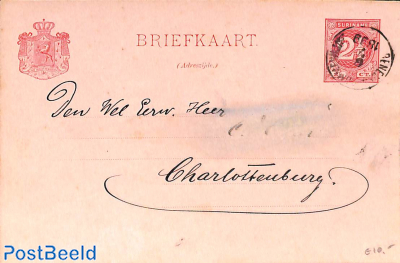 BRIEFKAART.
(Adreszijde.)
SURINAME
2½
CT.
Den Wel Eerw. Heer
Charlottenburg.
PostBeeld